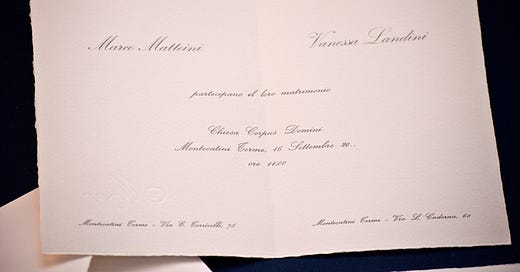 Marco Matteini
Vanessa Landini
partecipano il loro matrimonio
Chiesa Corpus Domini
Montecatini Terme, 16 Settembre 20..
ore 11.00
Montecatini Terme - Via E. Torricelli, 75
Montecatini Terme - Via L. Cadorna, 60